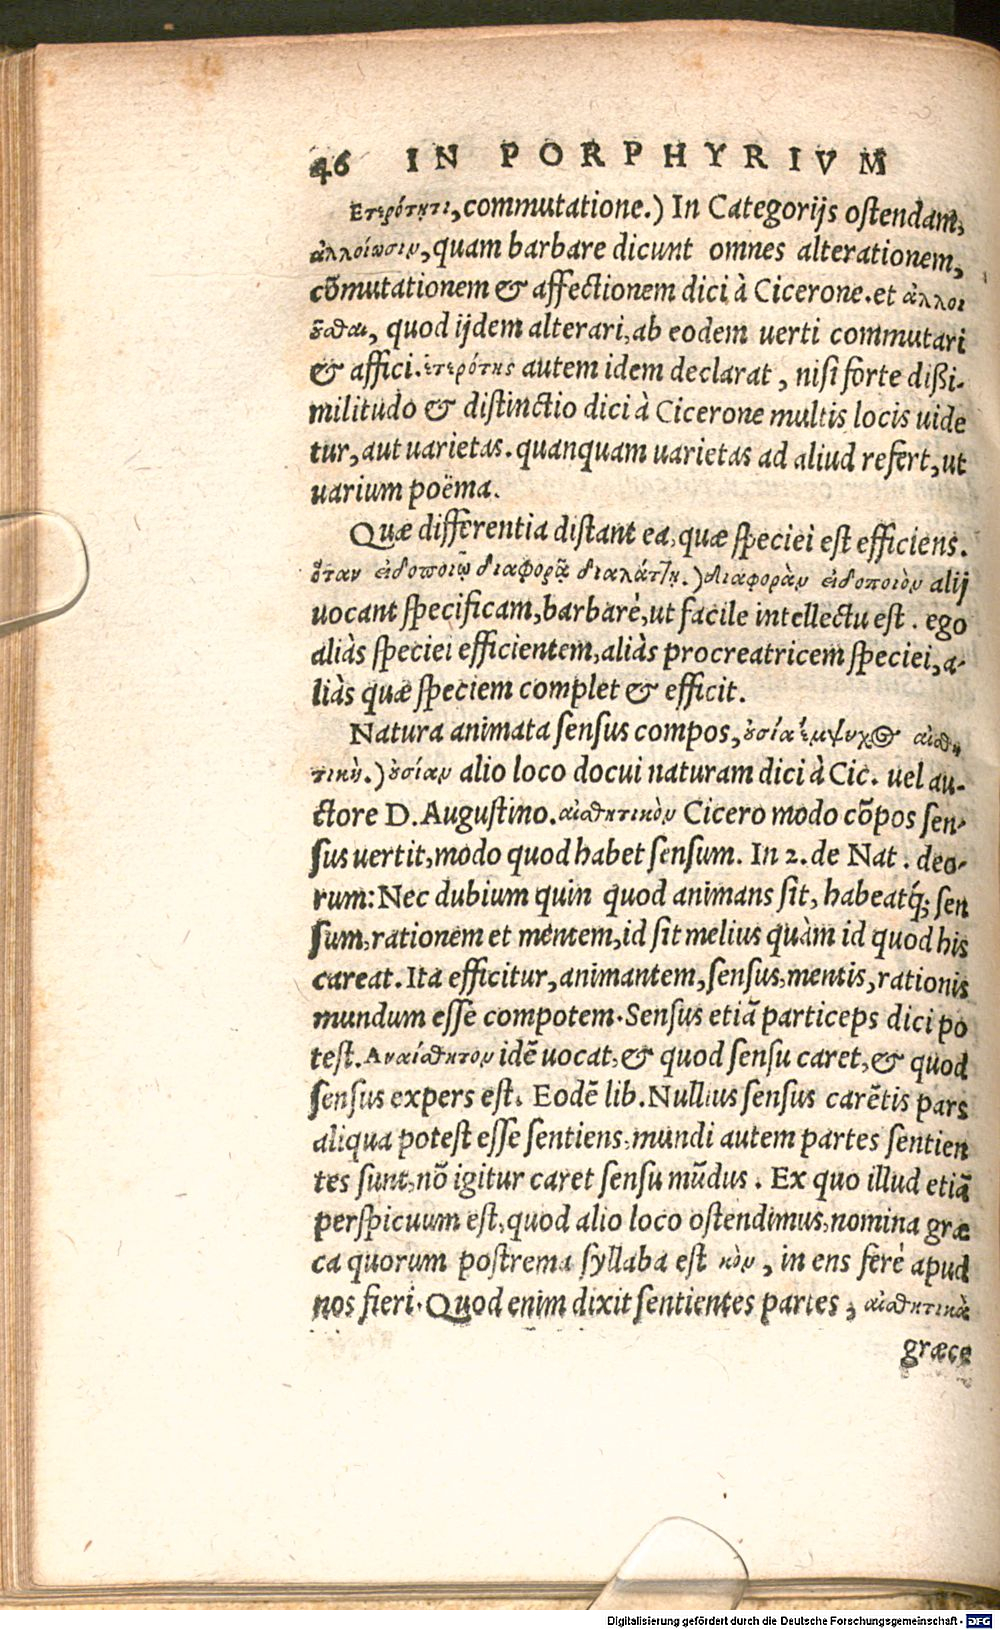 46 IN PORPHYRIVM
Ετερότητι, commutatione.) In Categorijs ostendam,
ἀλλοίωσιν, quam barbare dicunt omnes alterationem,
cõmutationem & affectionem dici à Cicerone. et ἀλλοι
ȣ̃σθαι, quod ijdem alterari, ab eodem uerti commutari
& affici. ἑτερότης autem idem declarat, nisi forte dißi-
militudo & distinctio dici à Cicerone multis locis uide
tur, aut uarietas. quanquam uarietas ad aliud refert, ut
uarium poëma.
Quæ differentia distant ea, quæ speciei est efficiens.
ὅταν εἰδοποιῷ διαφορᾷ διαλάττῃ.) διαφορὰν εἰδοποιὸν alij
uocant specificam, barbarè, ut facile intellectu est. ego
aliàs speciei efficientem, aliàs procreatricem speciei, a-
liàs quæ speciem complet & efficit.
Natura animata sensus compos, ȣ̓σία ἔμψυχος αἰσθη
τικὴ.) ȣ̓σίαν alio loco docui naturam dici à Cic. uel au-
ctore D. Augustino. αἰσθητικὸν Cicero modo cõpos sen-
sus uertit, modo quod habet sensum. In 2. de Nat. deo-
rum: Nec dubium quin quod animans sit, habeatq́; sen
sum, rationem et mentem, id sit melius quàm id quod his
careat. Ita efficitur, animantem, sensus, mentis, rationis
mundum esse compotem. Sensus etiã particeps dici po
test. Αναίσθητον idẽ uocat, & quod sensu caret, & quod
sensus expers est. Eodẽ lib. Nullius sensus carẽtis pars
aliqua potest esse sentiens, mundi autem partes sentien
tes sunt, nõ igitur caret sensu mũdus. Ex quo illud etiã
perspicuum est, quod alio loco ostendimus, nomina græ
ca quorum postrema syllaba est κὸν, in ens ferè apud
nos fieri. Quod enim dixit sentientes partes, αἰσθητικὰ
græce
Digitalisierung gefördert durch die Deutsche Forschungsgemeinschaft - DFG